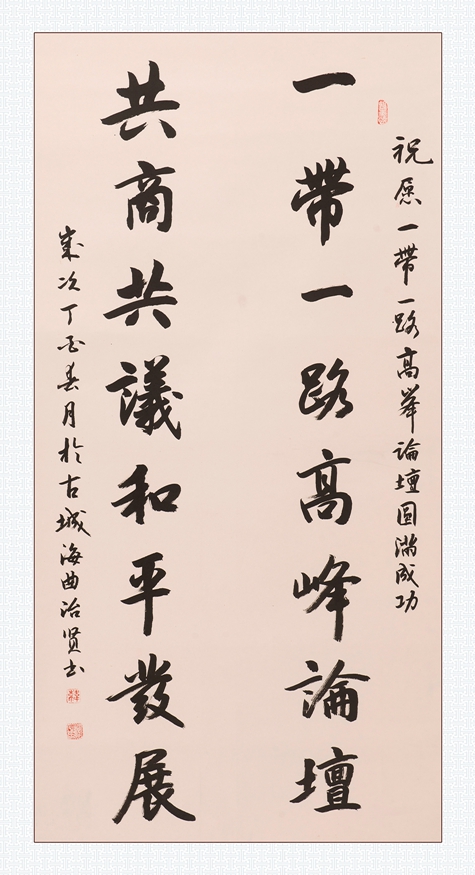 祝愿一帶一路高峯論壇圓滿成功
一帶一路高峰論壇
共商共議和平發展
歲次丁酉春月於古城海曲治贤书